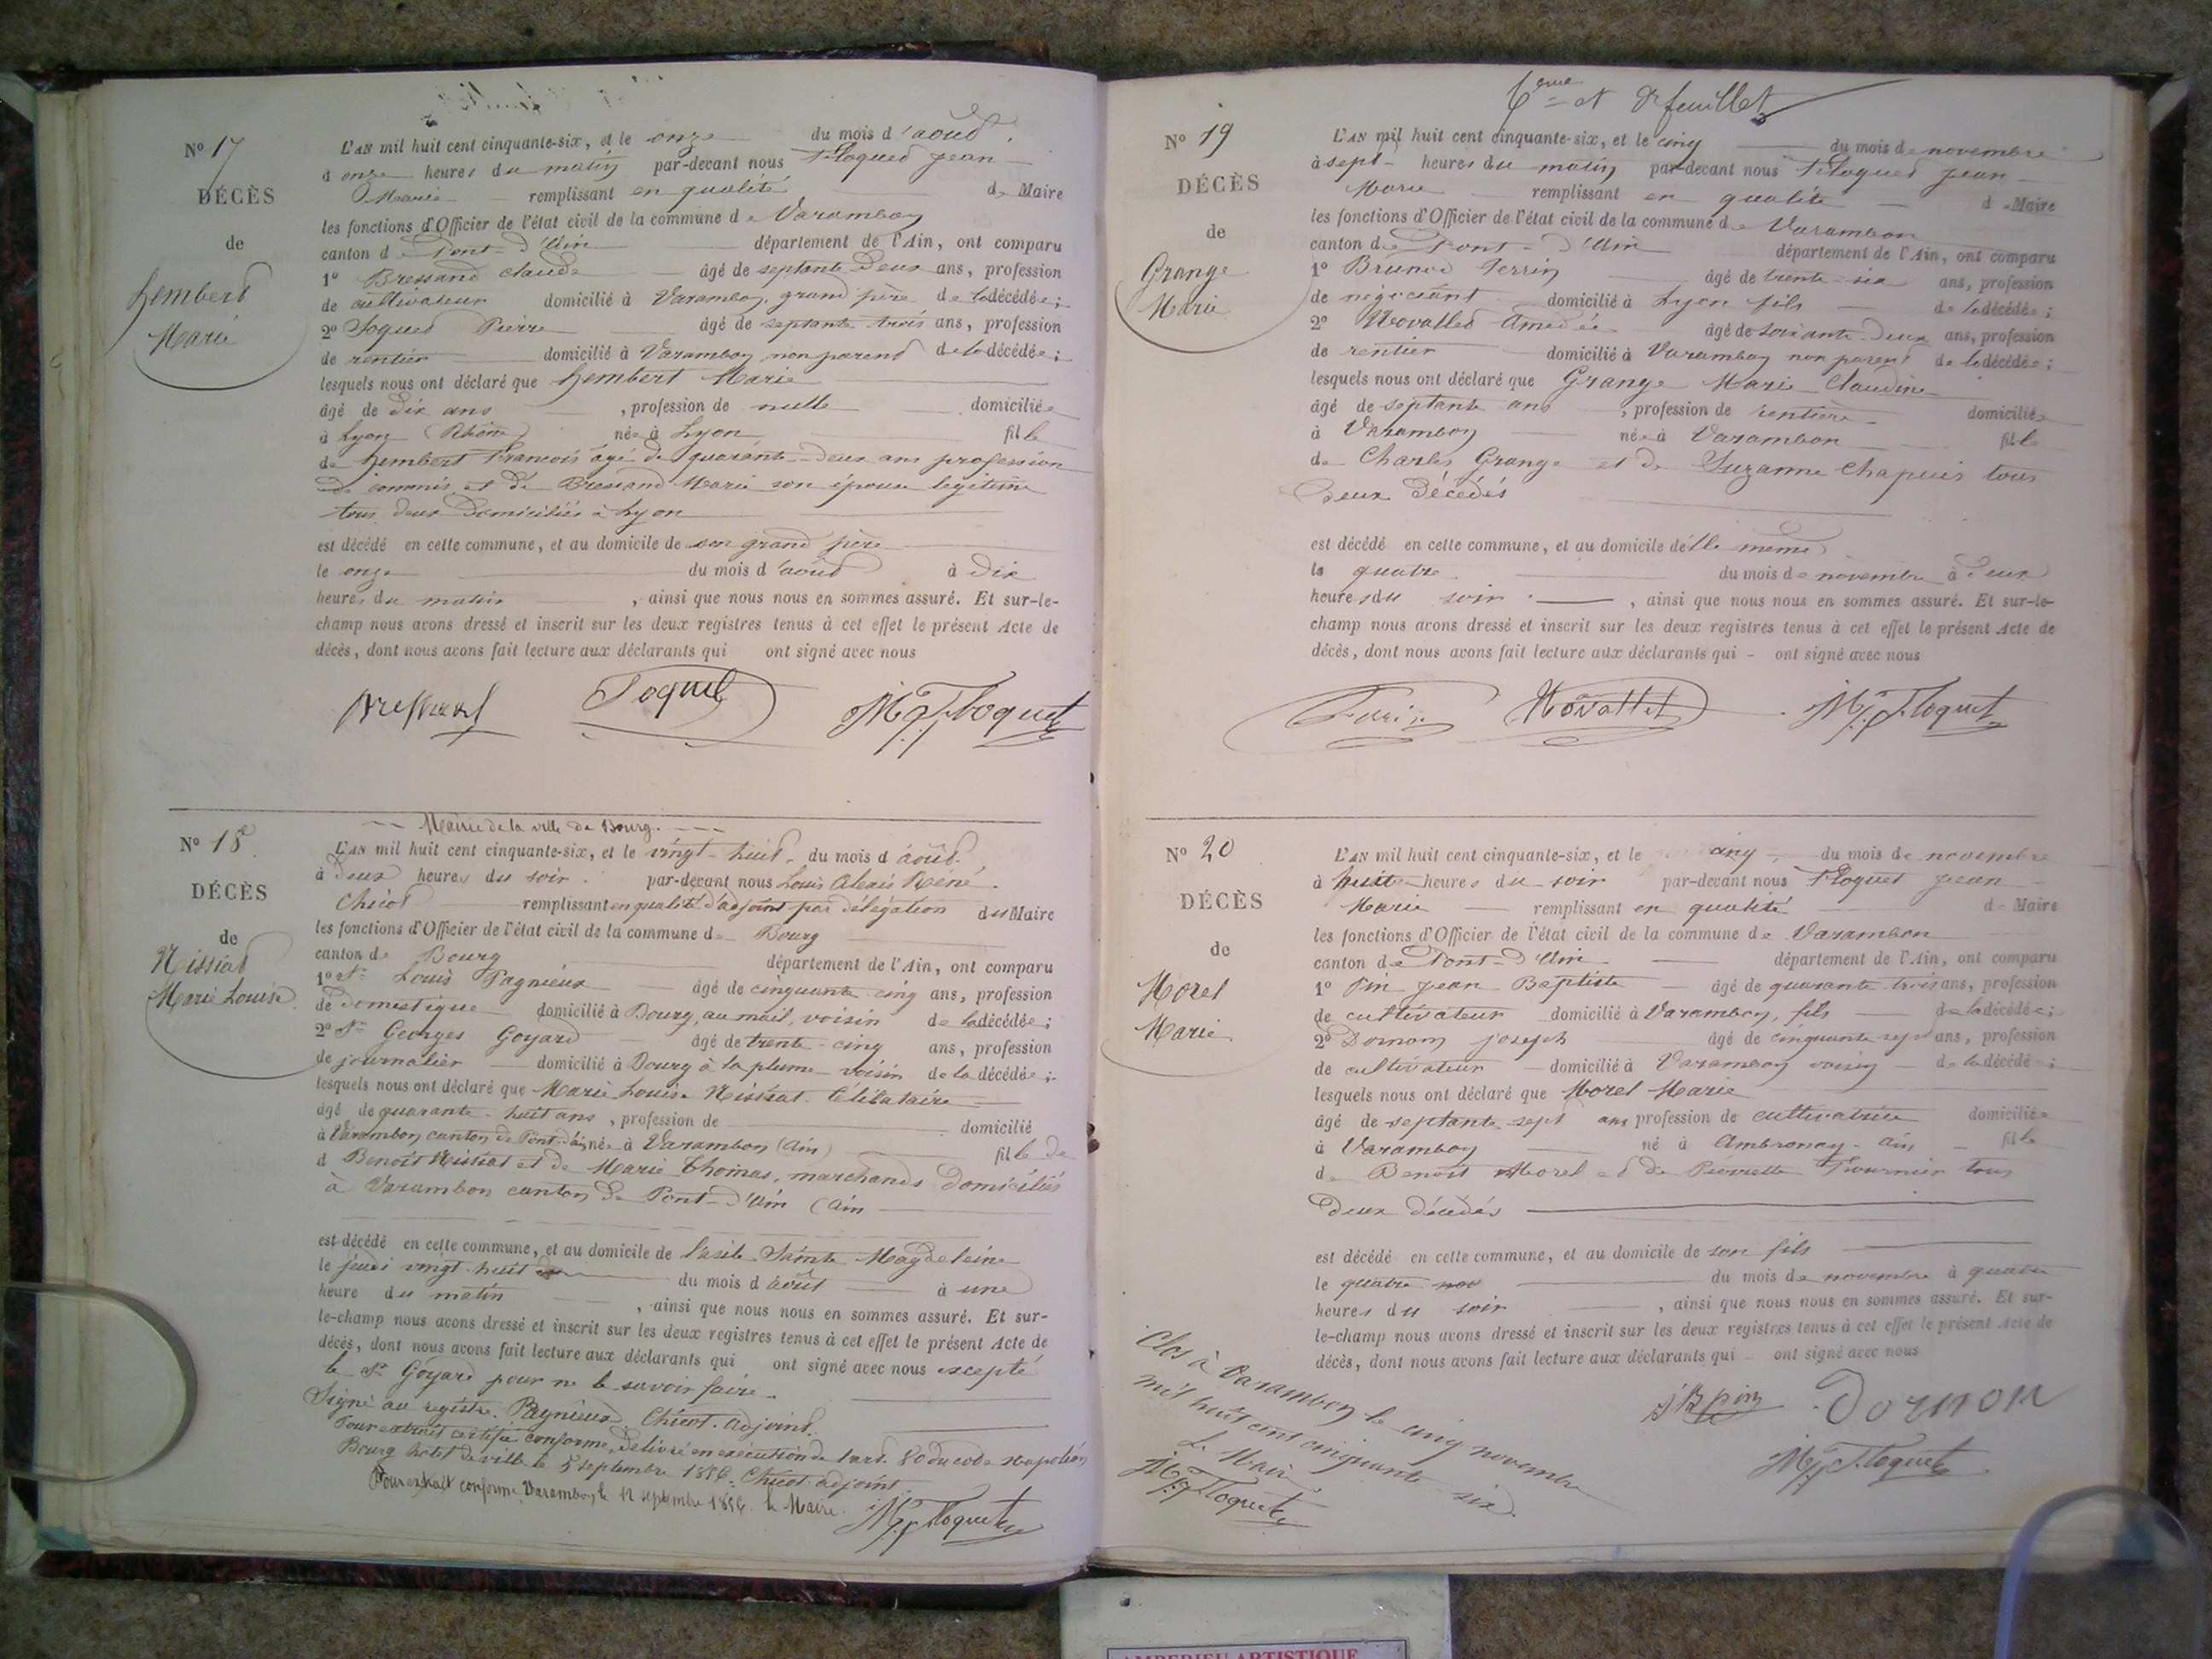 No 17
DÉCÈS
de
Hembert
Marie
L'AN mil huit cent cinquante-six, et le onze du mois d'août
à onze heures du matin par-devant nous Floquet Jean
Marie remplissant en qualité de Maire
les fonctions d'Officier de l'état civil de la commune de Varambon
canton de Pont-d'Ain département de l'Ain, ont comparu
1º Bressand Claude âgé de septante-deux ans, profession
de cultivateur domicilié à Varambon, grand père de la décédée;
2º Joquet Pierre âgé de septante trois ans, profession
de rentier domicilié à Varambon non parent de la décédée;
lesquels nous ont déclaré que Hembert Marie
âgé de dix ans, profession de nulle domiciliée
à Lyon (Rhône) née à Lyon fille
de Hembert François âgé de quarante-deux ans profession
de commis et de Bressand Marie son épouse légitime
tous deux domiciliés à Lyon
est décédé en cette commune, et au domicile de son grand père
le onze du mois d'août à dix
heures du matin, ainsi que nous nous en sommes assuré. Et sur-le-
champ nous avons dressé et inscrit sur les deux registres tenus à cet effet le présent Acte de
décès, dont nous avons fait lecture aux déclarants qui ont signé avec nous
Bressand Joquet M J Floquet
Mairie de la ville de Bourg.
No 18
DÉCÈS
de
Nissiat
Marie Louise
L'AN mil huit cent cinquante-six, et le vingt-huit du mois d'août
à deux heures du soir par-devant nous Louis Alexis Réné
Chicot remplissant en qualité d'adjoint par délégation du Maire
les fonctions d'Officier de l'état civil de la commune de Bourg
canton de Bourg département de l'Ain, ont comparu
1º Sr Louis Pagnieux âgé de cinquante cinq ans, profession
de domestique domicilié à Bourg, au mail, voisin de la décédée;
2º Sr Georges Goyard âgé de trente-cinq ans, profession
de journalier domicilié à Bourg à la plume voisin de la décédée;
lesquels nous ont déclaré que Marie Louise Nissiat célibataire
âgé de quarante-huit ans, profession de domicilié
à Varambon canton de Pont-d'Ain, née à Varambon (Ain) fille de
d Benoît Nissiat et de Marie Thomas, marchands domiciliés
à Varambon canton de Pont-d'Ain (Ain
est décédé en cette commune, et au domicile de l'asile Sainte Magdeleine
le jeudi vingt-huit du mois d'août à une
heure du matin, ainsi que nous nous en sommes assuré. Et sur-
le-champ nous avons dressé et inscrit sur les deux registres tenus à cet effet le présent Acte de
décès, dont nous avons fait lecture aux déclarants qui ont signé avec nous excepté
le Sr Goyard pour ne le savoir faire.
Signé au registre. Pagnieux, Chicot. adjoint.
Pour extrait certifié conforme, délivré en exécution de l'art. 80 du code napoléon
Bourg hôtel de ville le 5 septembre 1856. Chicot. adjoint
Pour extrait conforme Varambon, le 12 septembre 1856. le Maire.
M J Floquet
6eme et dr feuillet
No 19
DÉCÈS
de
Grange
Marie
L'AN mil huit cent cinquante-six, et le cinq du mois de novembre
à sept heures du matin par-devant nous Floquet Jean
Marie remplissant en qualité de Maire
les fonctions d'Officier de l'état civil de la commune de Varambon
canton de Pont-d'Ain département de l'Ain, ont comparu
1º Brunod Ferrin âgé de trente-six ans, profession
de négociant domicilié à Lyon fils de la décédée;
2º Novallet Amédée âgé de soixante-deux ans, profession
de rentier domicilié à Varambon non parent de la décédée;
lesquels nous ont déclaré que Grange Marie Claudine
âgé de septante ans, profession de rentière domiciliée
à Varambon née à Varambon fille
de Charles Grange et de Suzanne Chapuis tous
deux décédés
est décédé en cette commune, et au domicile d'elle même
le quatre du mois de novembre à deux
heures du soir, ainsi que nous nous en sommes assuré. Et sur-le-
champ nous avons dressé et inscrit sur les deux registres tenus à cet effet le présent Acte de
décès, dont nous avons fait lecture aux déclarants qui - ont signé avec nous
Novallet M J Floquet
No 20
DÉCÈS
de
Morel
Marie
L'AN mil huit cent cinquante-six, et le cinq du mois de novembre
à huit heures du soir par-devant nous Floquet Jean
Marie remplissant en qualité de Maire
les fonctions d'Officier de l'état civil de la commune de Varambon
canton de Pont-d'Ain département de l'Ain, ont comparu
1º Pin Jean Baptiste âgé de quarante-trois ans, profession
de cultivateur domicilié à Varambon, fils de la décédée;
2º Dornon Joseph âgé de cinquante sept ans, profession
de cultivateur domicilié à Varambon voisin de la décédée;
lesquels nous ont déclaré que Morel Marie
âgé de septante-sept ans profession de cultivatrice domiciliée
à Varambon né à Ambronay-Ain fille
de Benoit Morel et de Pierrette Fournier tous
deux décédés
est décédé en cette commune, et au domicile de son fils
le quatre nov du mois de novembre à quatre
heures du soir, ainsi que nous nous en sommes assuré. Et sur-
le-champ nous avons dressé et inscrit sur les deux registres tenus à cet effet le présent Acte de
décès, dont nous avons fait lecture aux déclarants qui - ont signé avec nous
JB pin Dornon
M J Floquet
Clos à Varambon le cinq novembre
mil huit cent cinquante six.
Le Maire
M J Floquet
AMBERIEU ARTISTIQUE